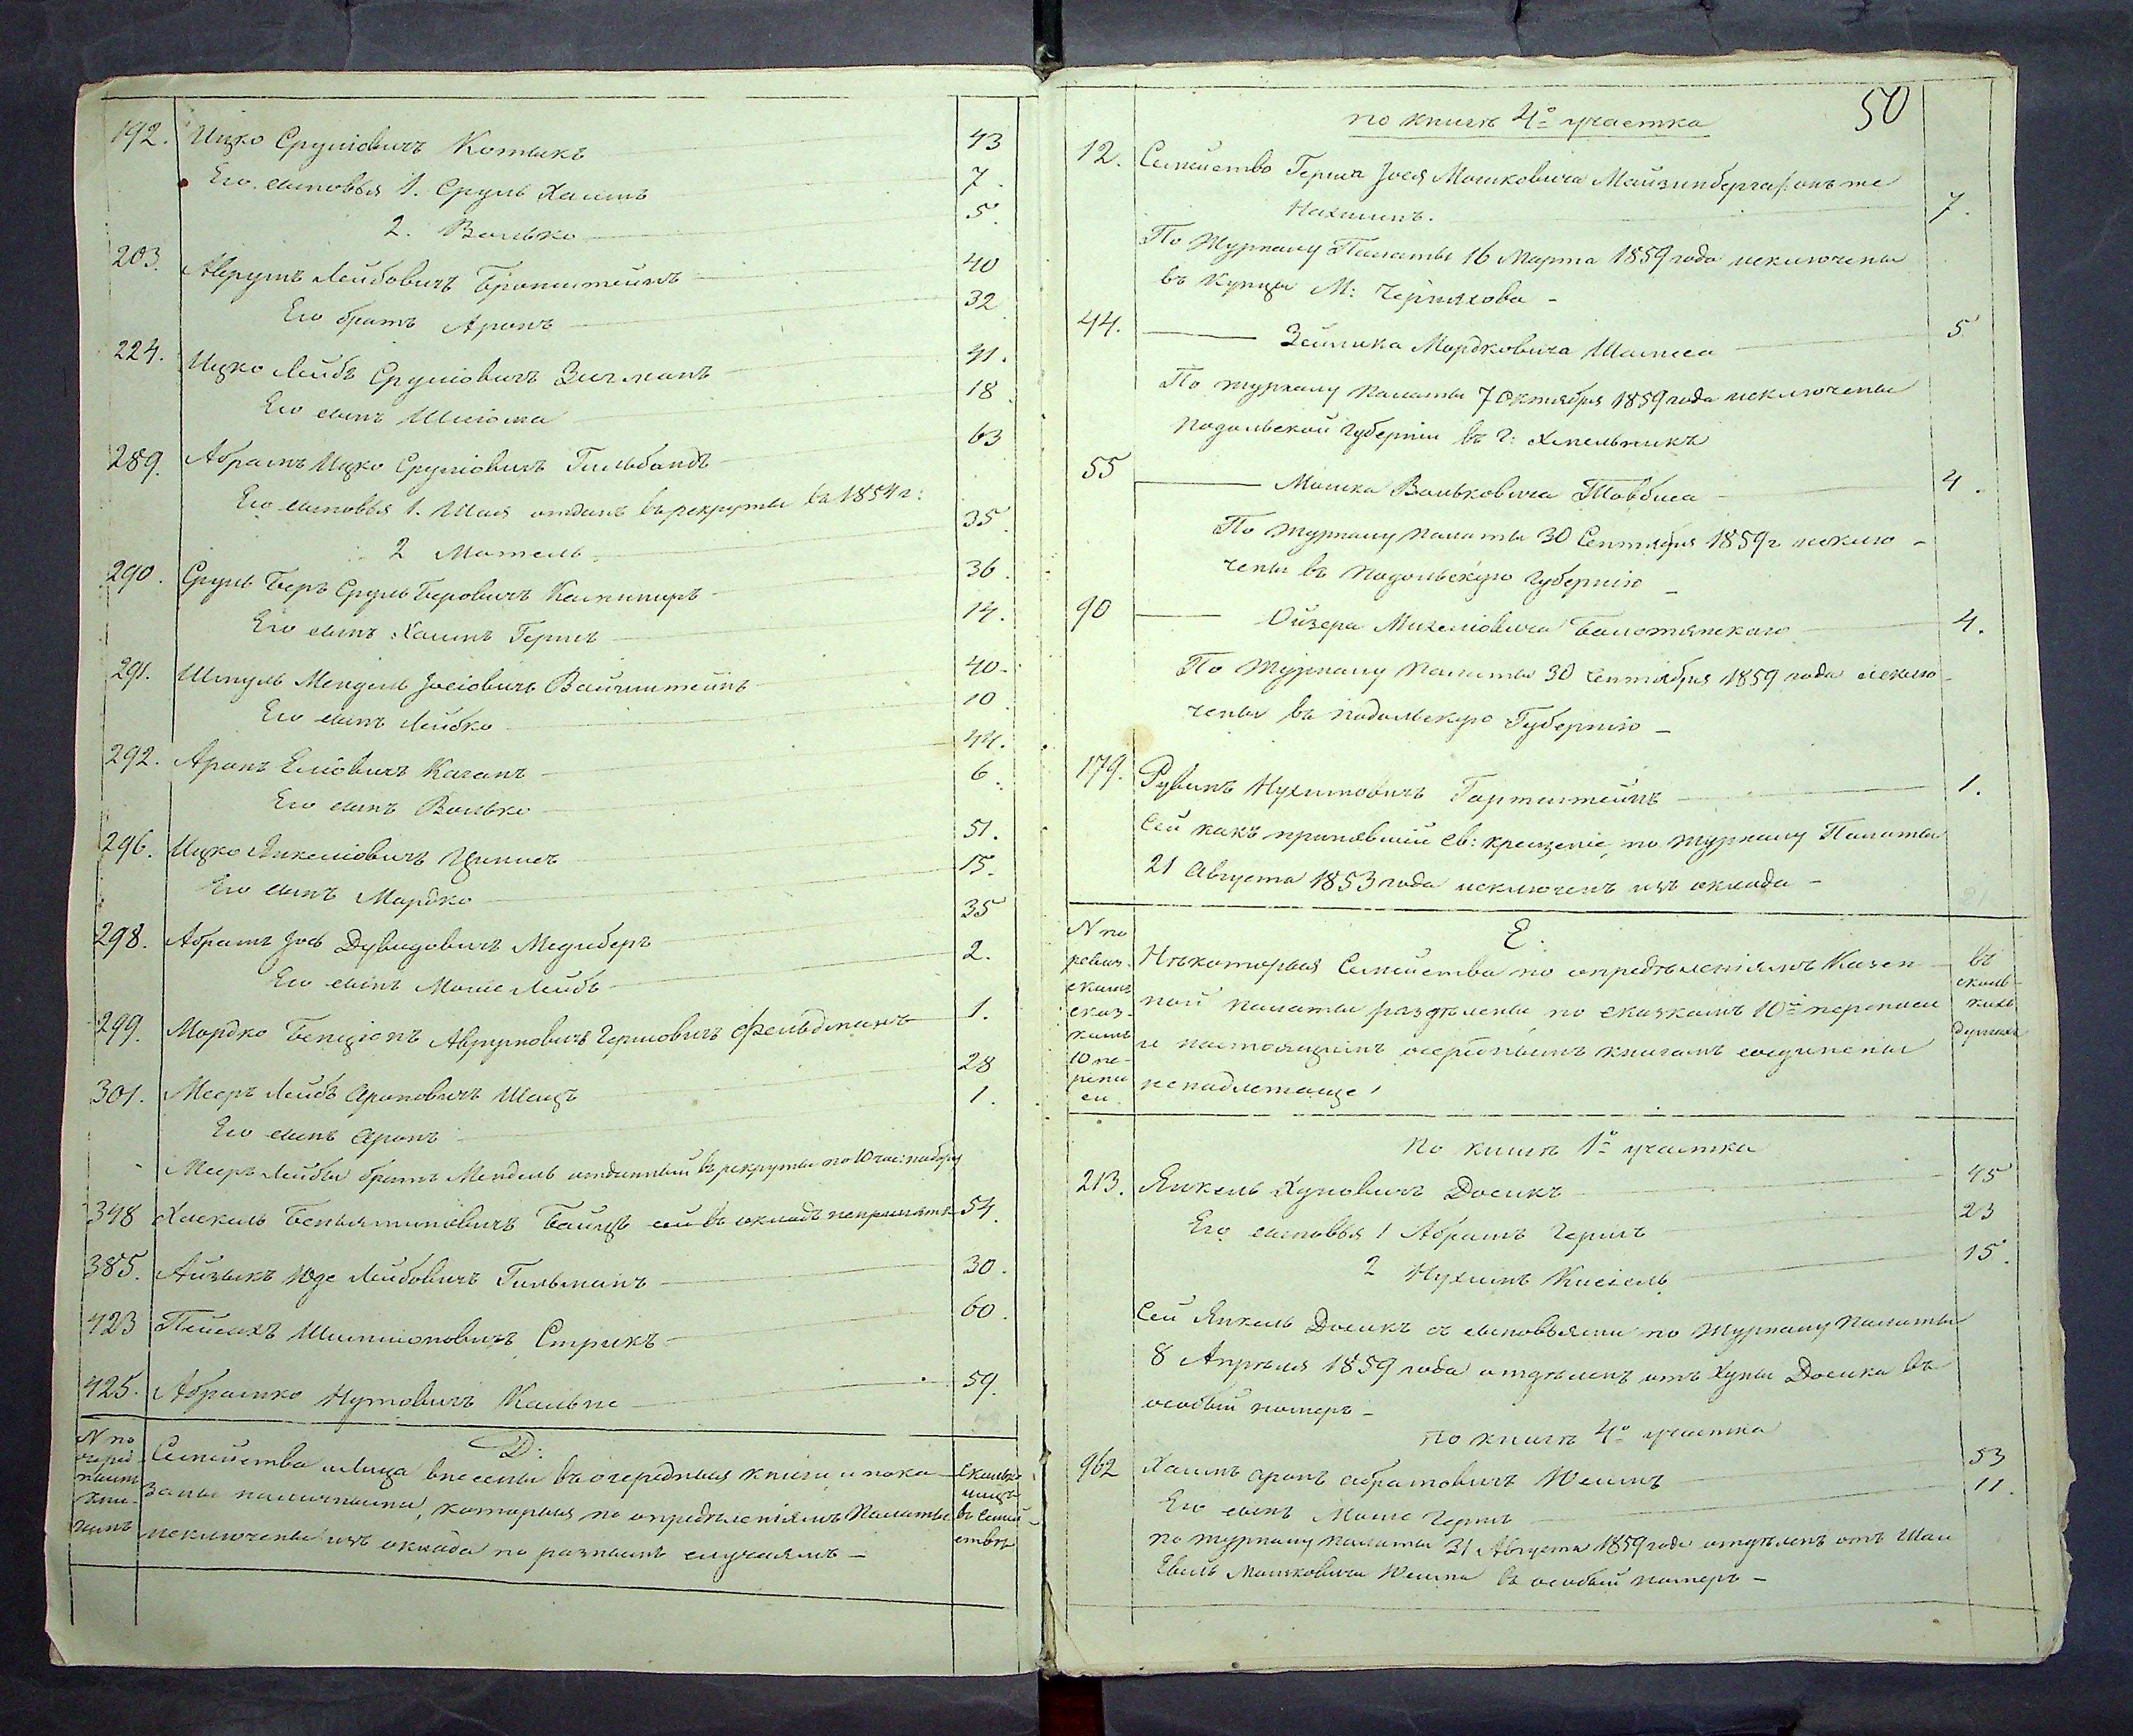 192. Ицко Сруліовичъ Котыкъ 43
Его сыновья 1. Сруль Хаимъ 7.
2. Волько 5.
203. Аврумъ Лейбовичъ Бронштейнъ 40
Его братъ Аронъ 32
224. Ицко Лейбъ Сруліовичъ Зигманъ 41.
Его сынъ Шліома 18
289. Абрамъ Ицко Сруліовичъ Гильбандъ 63
Его сыновья 1. Шая отданъ въ рекруты въ 1854 г:
2 Мотель 35
290. Сруль Беръ Сруль Беровичъ 36.
Его сынъ Хаимъ Гершъ 14.
291. Шмуль Мендель Іосіовичъ Вайнштейнъ 40.
Его сынъ Лейбко 10.
292. Аронъ Еліовичъ Каганъ 44.
Его сынъ Волько 6.
296. Ицко Янкеліовичъ Циписъ 51.
Его сынъ Мордко 15.
298. Абрамъ Іось Дувидовичъ Медиберъ 35
Его сынъ Мошé Лейбъ 2.
299. Мордко Бенціонъ Аврумовичъ Гершовичъ Фельдманъ 1.
301. Мееръ Лейбъ Ароновичъ Шацъ 28
Его сынъ Аронъ 1.
Мееръ Лейбы братъ Мендель отданный въ рекруты по 10 час: набору
348 Хаскель Беньяминовичъ сей въ окладъ непринятъ 54.
385. Айзыкъ Юде Лейбовичъ Гильманъ 30.
423 Пейсахъ Шимшоновичъ Стрикъ 60.
425. Абрамко Нутовичъ Кальне 59.
N по Д:
очеред Семейства и Лица внесены въ очередныя книги и пока- сколько
нымъ заны наличными, которыя по опредѣленіямъ Палаты лицъ въ семей-
кни-гамъ исключены изъ оклада по разнымъ случаямъ ‒ ствѣ
50
по книгѣ 4º участка
12. Семейство Герша Іося Мошковича Майзинберга /: онъ же
Нахманъ. 7.
По Журналу Палаты 16 Марта 1859 года исключены
въ Купцы М: Черняхова ‒
44. Зейлика Мордковича Шамиса 5
По журналу палаты 7 Октября 1859 года исключены
Подольской Губерніи въ г: Хмельникъ
55 Мошка Вольковича Товбиса 4.
По журналу палаты 30 Сентября 1859 г исклю-
чены въ Подольскую Губернію ‒
90 Ойзера Михеліовича Болотянскаго 4.
По Журналу палаты 30 Сентября 1859 года исклю-
чены въ Подольскую Губернію ‒
179. Рувинъ Нухимовичъ Гортштейнъ 1.
Сей какъ принявшій Св: крещеніе, по журналу Палаты
21 Августа 1853 года исключенъ изъ оклада ‒
21
N по Е.
ревиз- Нѣкоторыя Семейства по опредѣленіямъ Казен- въ
скимъ ной палаты раздѣлены, по сказкамъ 10й переписи сколь-
сказ-камъ и настоящимъ очереднымъ книгамъ соединены кихъ душахъ
10 пе-реписи ненадлежаще!
По книгѣ 1º участка
213. Янкель Хуновичъ Досикъ 45
Его сыновья 1 Абрамъ Гершъ 23
2 Нухимъ Кисіель 15.
Сей Янкель Досикъ съ сыновьями по Журналу Палаты
8 Апрѣля 1859 года отдѣленъ отъ Хуны Досика въ
особый номеръ ‒
по книгѣ 4º участка
962 Хаимъ Аронъ Абрамовичъ 53
Его сынъ Моше Гершъ 11.
по журналу палаты 31 Августа 1859 года отдѣленъ отъ Шаи
Мошковича въ особый номеръ ‒